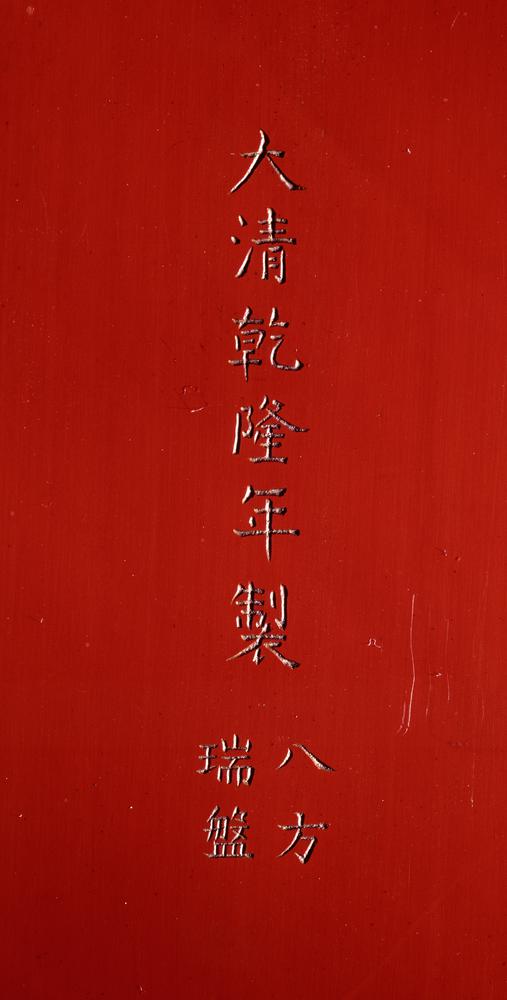 大清乾隆年製
八方
瑞盤